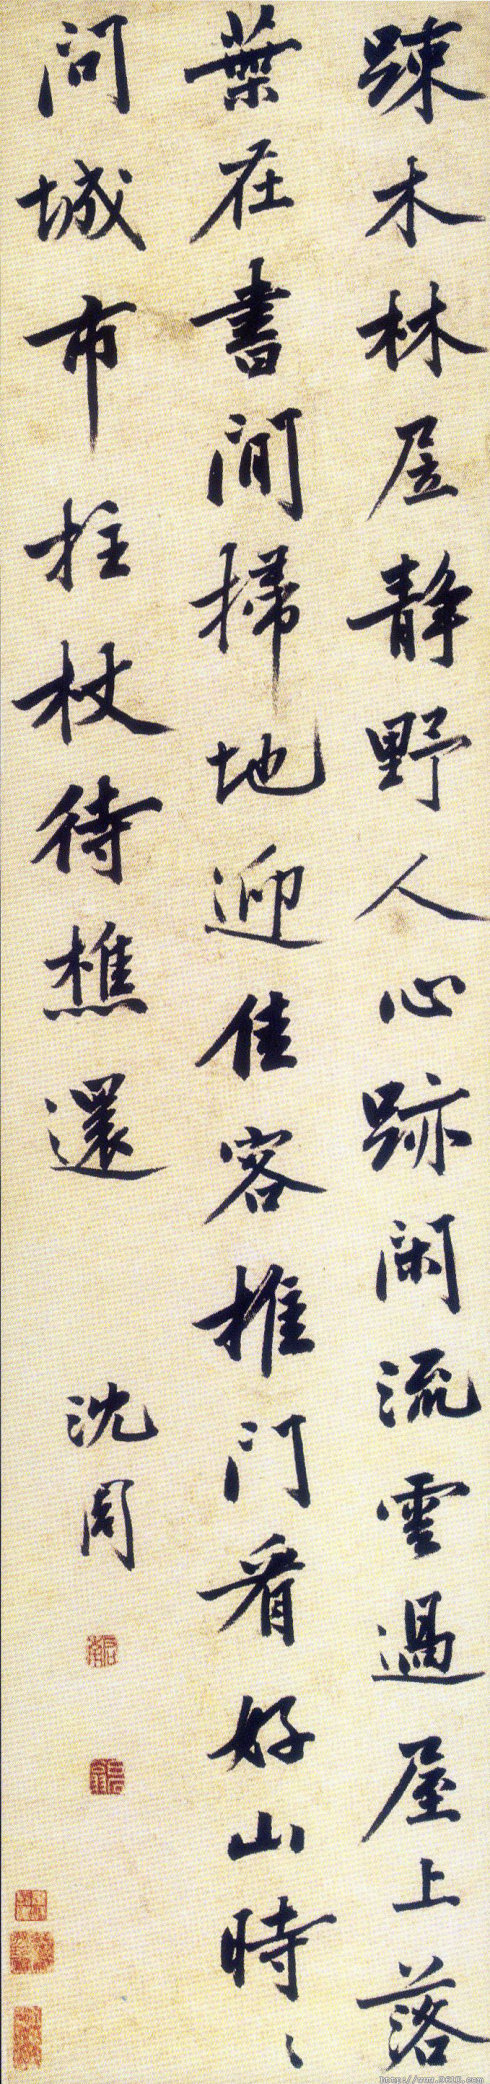 踈木林居静野人心跡閑流雲過屋上落
葉在書間掃地迎佳客推门看好山時〻
问城市拄杖待樵還
沈周
http://www.9610.com